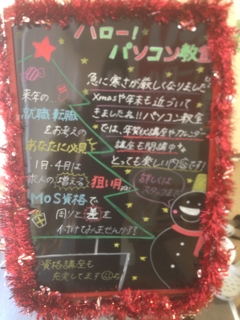 ハロー!
パソコン教室
急に寒さが厳しくなりました
Xmasや年末も近づいて
きましたね!!パソコン教室
では、年賀状講座やカレンダー
講座も開講中
とっても楽しい内容です!
来年の
就職・転職
をお考えの
あなたに必見!
1月・4月は
求人の増える狙い目
MOS資格で
周りと差を
付けてみませんか!
詳しくは
スタッフまで
資格講座も
充実してます